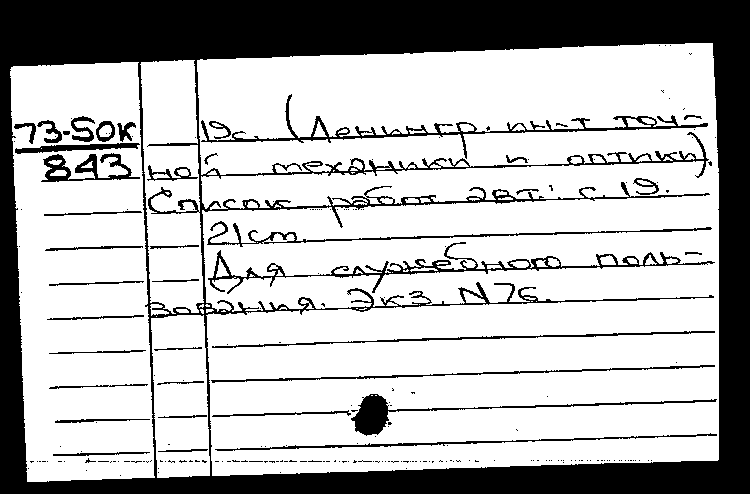 73-50к 19с. (Ленингр. ин-т точ-
843 ной механики и оптики).
Список работ авт.: с. 19.
21cm.
Для служебного поль-
зования. Экз. N76.